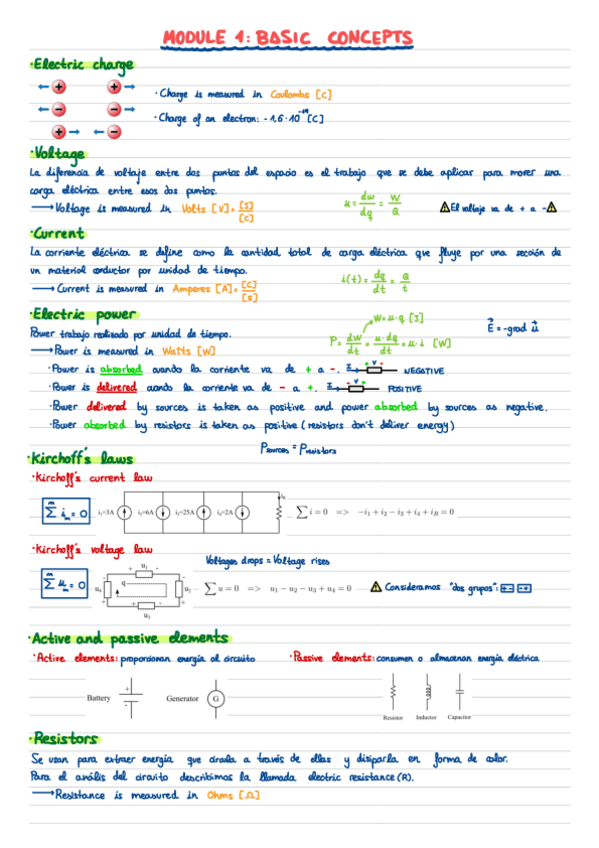 MODULE 1: BASIC CONCEPTS
·Electric charge
·Charge is measured in Coulombs [C]
·Charge of an electron: -1,6·10⁻¹⁹ [C]
·Voltage
La diferencia de voltaje entre dos puntos del espacio es el trabajo que se debe aplicar para mover una
carga eléctrica entre esos dos puntos.
→ Voltage is measured in Volts [V] = [J]/[C]
u = dw/dq = W/Q
⚠ El voltaje va de + a - ⚠
·Current
La corriente eléctrica se define como la cantidad total de carga eléctrica que fluye por una sección de
un material conductor por unidad de tiempo.
→ Current is measured in Amperes [A] = [C]/[s]
i(t) = dq/dt = Q/t
·Electric power
Power trabajo realizado por unidad de tiempo.
W = u·q [J]
P = dW/dt = u·dq/dt = u·i [W]
E⃗ = -grad u⃗
→ Power is measured in Watts [W]
·Power is absorbed cuando la corriente va de + a -. I + V - NEGATIVE
·Power is delivered cuando la corriente va de - a +. I - V + POSITIVE
·Power delivered by sources is taken as positive and power absorbed by sources as negative.
·Power absorbed by resistors is taken as positive (resistors don't deliver energy)
Psources = Presistors
·Kirchoff's laws
·Kirchoff's current law
∑ iₘ = 0
i₁=3A i₂=6A i₃=25A i₄=2A iR
∑ i = 0 => -i₁ + i₂ - i₃ + i₄ + iR = 0
·Kirchoff's voltage law
Voltages drops = Voltage rises
∑ uₘ = 0
u₁ u₂ u₃ u₄ q
∑ u = 0 => u₁ - u₂ - u₃ + u₄ = 0
⚠ Consideramos "dos grupos": + - - +
·Active and passive elements
·Active elements: proporcionan energía al circuito
·Passive elements: consumen o almacenan energía eléctrica
Battery + -
Generator G
Resistor Inductor Capacitor
·Resistors
Se usan para extraer energía que circula a través de ellas y disiparla en forma de calor.
Para el análisis del circuito describimos la llamada electric resistance (R).
→ Resistance is measured in Ohms [Ω]